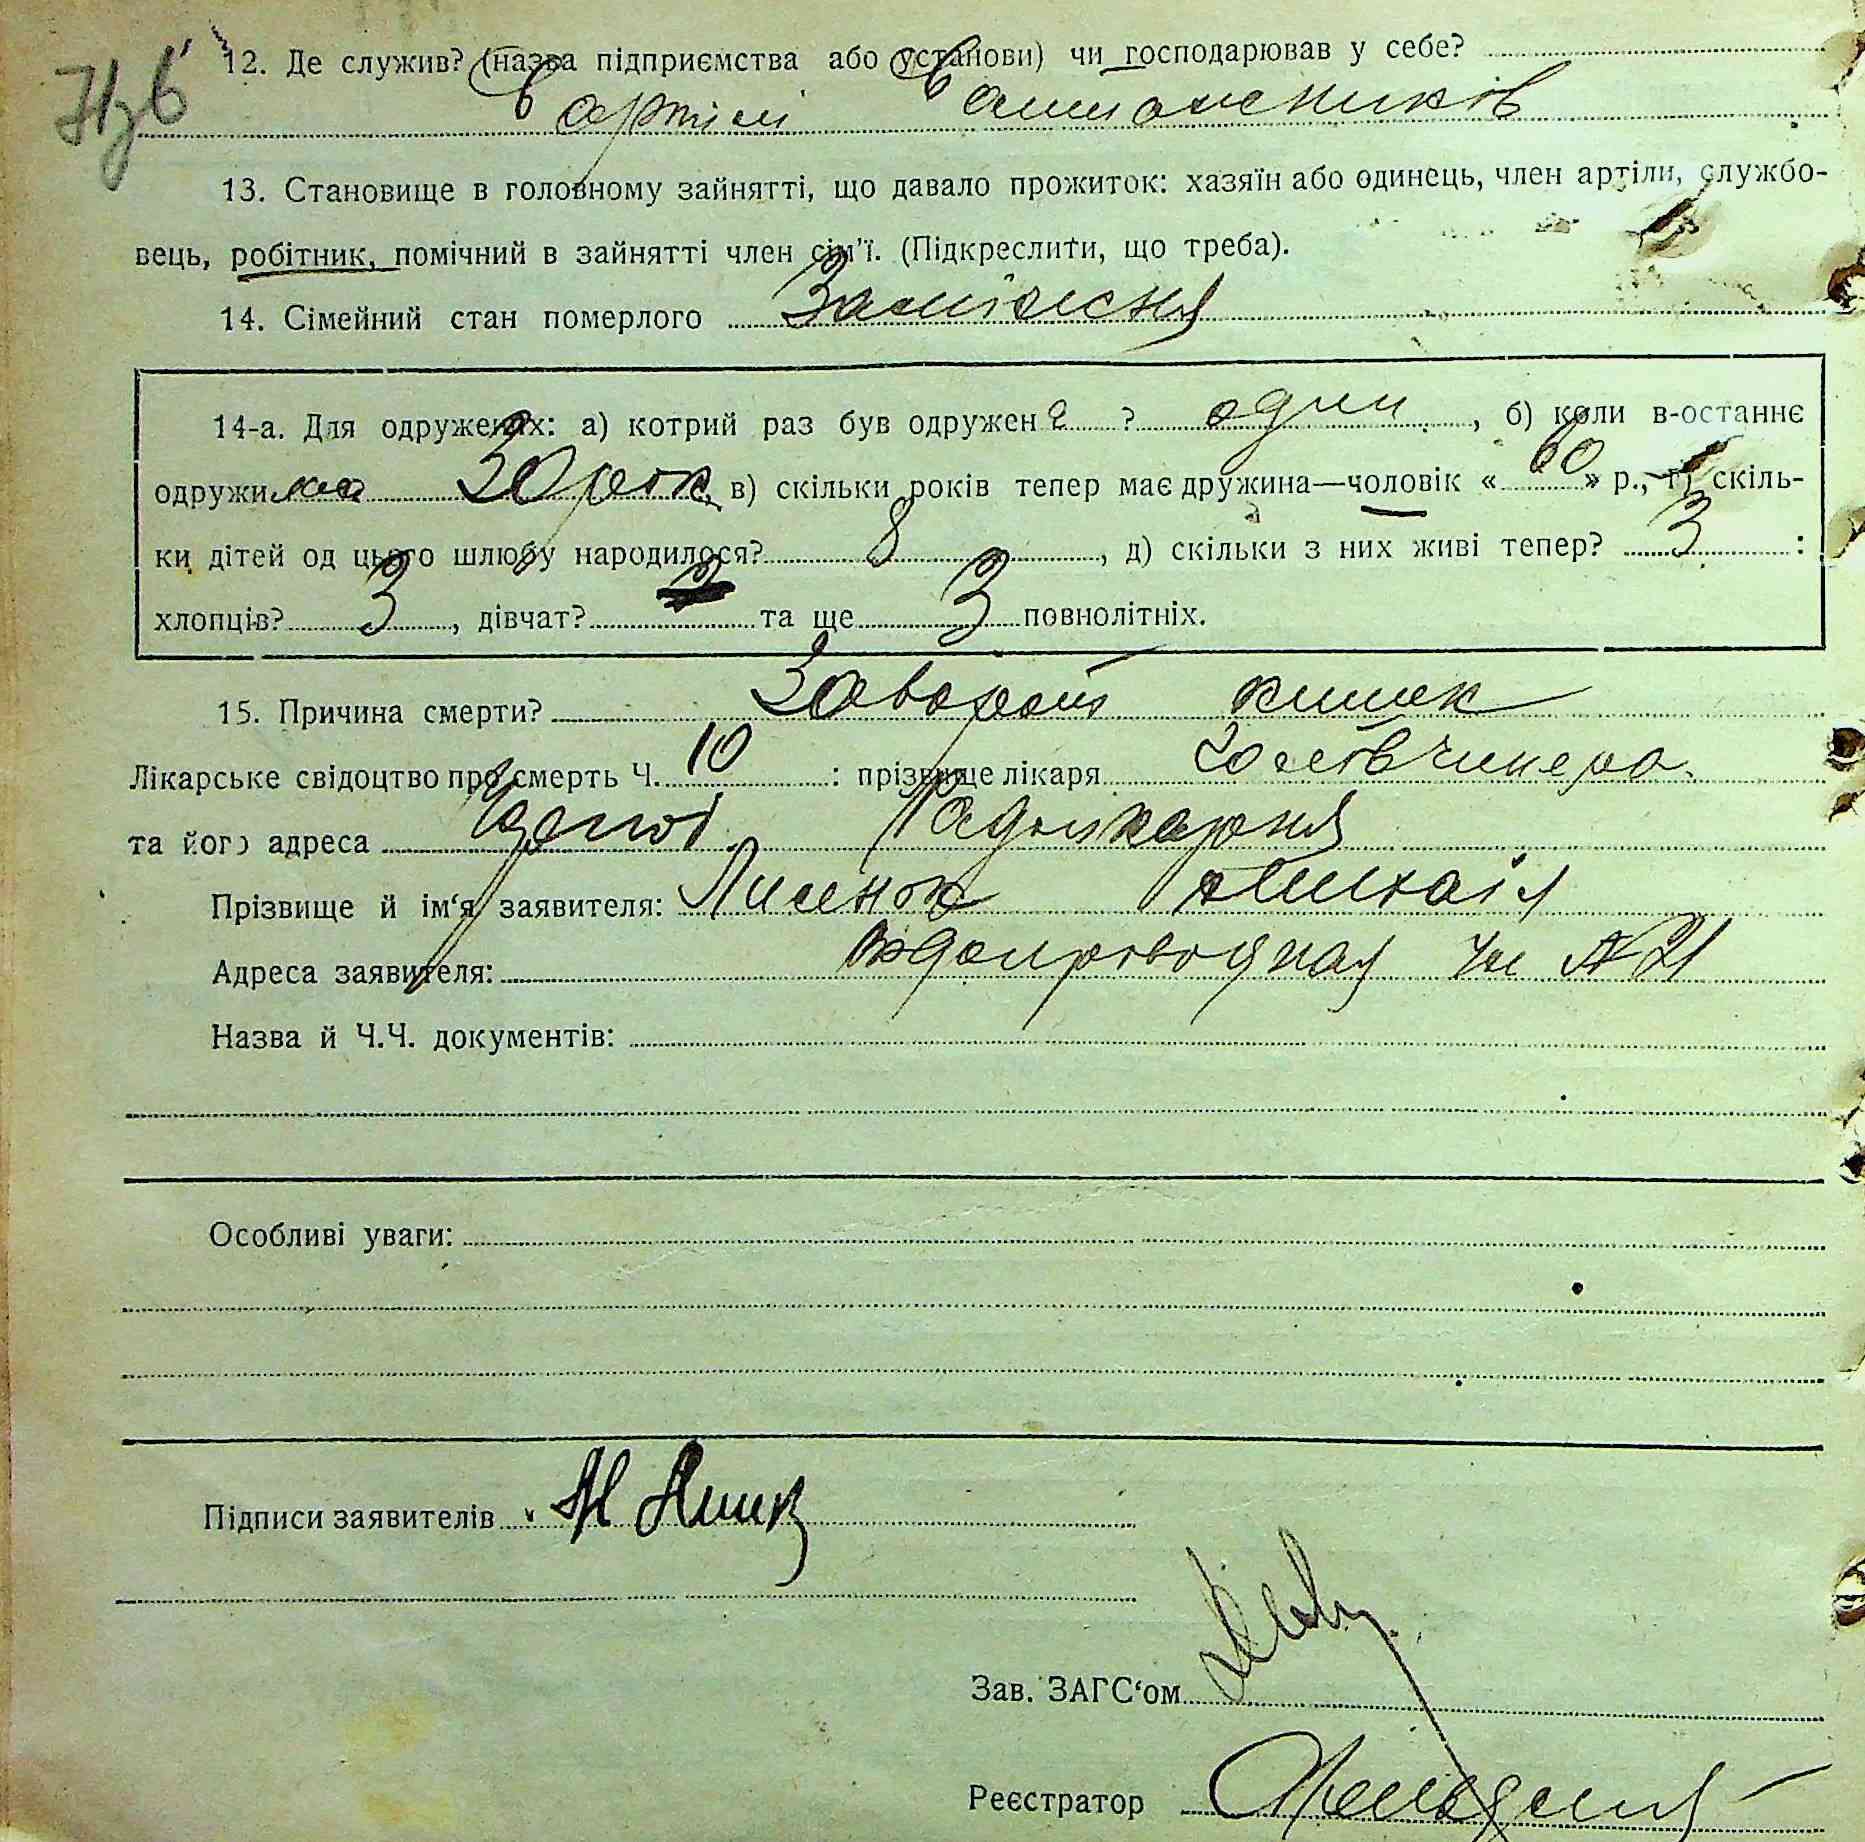 12. Де служив? (назва підприємства або установи) чи господарював у себе?
в артілі
13. Становище в головному зайнятті, що давало прожиток: хазяїн або одинець, член артіли, службо-
вець, робітник, помічний в зайнятті член сім'ї. (Підкреслити, що треба).
14. Сімейний стан померлого Заміжня
14-а. Для одружених: а) котрий раз був одружен ? один, б) коли в-останнє
одружи 30 рок, в) скільки років тепер має дружина—чоловік « 60 » р., г) скіль-
ки дітей од цього шлюбу народилося? 8, д) скільки з них живі тепер? 3 :
хлопців? 3, дівчат? та ще 3 повнолітніх.
15. Причина смерти? Заворот кишек
Лікарське свідоцтво про смерть Ч. 10 : прізвище лікаря
та його адреса
Прізвище й ім'я заявителя: Лисенок Михаіл
Адреса заявителя: № 21
Назва й Ч.Ч. документів:
Особливі уваги:
Підписи заявителів
Зав. ЗАГС'ом
Реєстратор